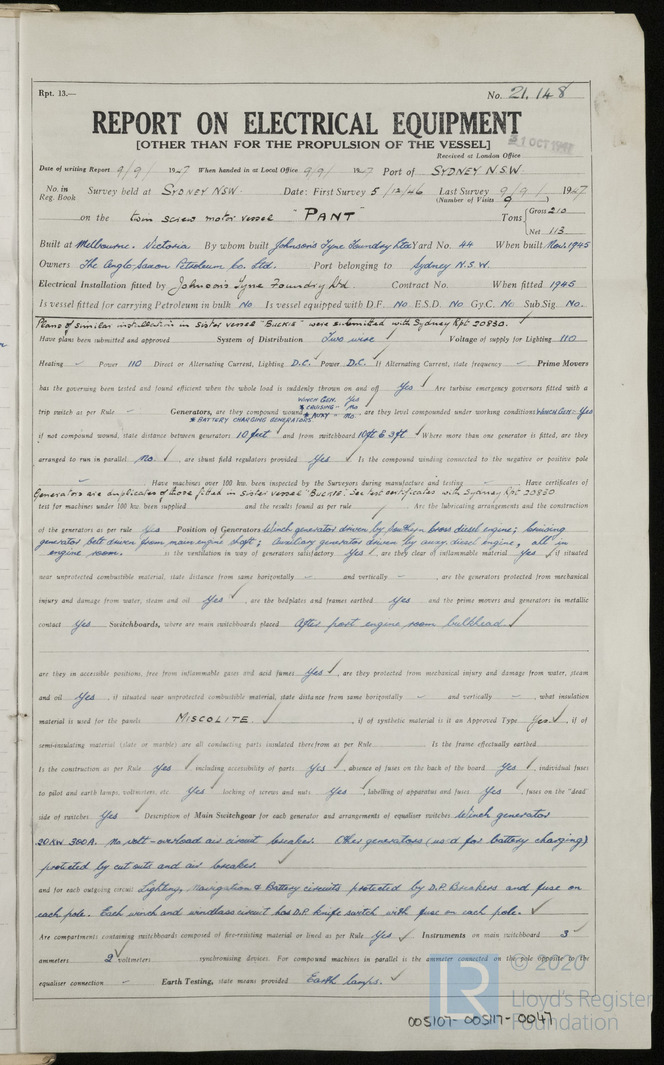 Rpt. 13.— No. 21.148
REPORT ON ELECTRICAL EQUIPMENT
[OTHER THAN FOR THE PROPULSION OF THE VESSEL]
Received at London Office
Date of writing Report 9/9/ 1947 When handed in at Local Office 9/9/ 1947 Port of SYDNEY N.S.W.
No. in Reg. Book Survey held at SYDNEY NSW. Date: First Survey 5/12/46 Last Survey 9/9/ 1947
(Number of Visits 9)
on the twin screw motor vessel "PANT" Tons Gross 210
Net 113
Built at Melbourne. Victoria By whom built Johnson's Tyne Foundry Ltd Yard No. 44 When built Nov. 1945
Owners The Anglo Saxon Petroleum Co. Ltd. Port belonging to Sydney N.S.W.
Electrical Installation fitted by Johnson's Tyne Foundry Ltd. Contract No. When fitted 1945
Is vessel fitted for carrying Petroleum in bulk No Is vessel equipped with D.F. No. E.S.D. No Gy.C. No Sub.Sig. No.
Plans of similar installation in sister vessel "BUCKIE" were submitted with Sydney Rpt 20830.
Have plans been submitted and approved System of Distribution Two wire Voltage of supply for Lighting 110
Heating – Power 110 Direct or Alternating Current, Lighting D.C. Power D.C. If Alternating Current, state frequency – Prime Movers
has the governing been tested and found efficient when the whole load is suddenly thrown on and off Yes Are turbine emergency governors fitted with a
WINCH GEN. Yes
* CRUISING - No
trip switch as per Rule – Generators, are they compound wound * AUXY - No. are they level compounded under working conditions WINCH GEN:- Yes
* BATTERY CHARGING GENERATORS
if not compound wound, state distance between generators 10 feet and from switchboard 10ft & 3ft Where more than one generator is fitted, are they
arranged to run in parallel No. are shunt field regulators provided Yes Is the compound winding connected to the negative or positive pole
– Have machines over 100 kw. been inspected by the Surveyors during manufacture and testing – Have certificates of
Generators are duplicates of those fitted in sister vessel "BUCKIE". See test certificates with Sydney Rpt 20830
test for machines under 100 kw. been supplied and the results found as per rule Are the lubricating arrangements and the construction
of the generators as per rule Yes Position of Generators Winch generator driven by Southern Cross diesel engine; cruising
generator belt driven from main engine shaft; Auxiliary generator driven by auxy. diesel engine, all in
engine room. is the ventilation in way of generators satisfactory Yes are they clear of inflammable material Yes if situated
near unprotected combustible material, state distance from same horizontally – and vertically –, are the generators protected from mechanical
injury and damage from water, steam and oil Yes, are the bedplates and frames earthed Yes and the prime movers and generators in metallic
contact Yes Switchboards, where are main switchboards placed After port engine room bulkhead.
are they in accessible positions, free from inflammable gases and acid fumes Yes, are they protected from mechanical injury and damage from water, steam
and oil Yes, if situated near unprotected combustible material, state distance from same horizontally – and vertically –, what insulation
material is used for the panels MISCOLITE, if of synthetic material is it an Approved Type Yes, if of
semi-insulating material (slate or marble) are all conducting parts insulated therefrom as per Rule Is the frame effectually earthed
Is the construction as per Rule Yes, including accessibility of parts Yes, absence of fuses on the back of the board Yes, individual fuses
to pilot and earth lamps, voltmeters, etc Yes locking of screws and nuts Yes, labelling of apparatus and fuses Yes, fuses on the "dead"
side of switches Yes Description of Main Switchgear for each generator and arrangements of equaliser switches Winch generator
No volt-overload air circuit breaker. Other generators (used for battery charging)
protected by cut outs and air breaker.
and for each outgoing circuit Lighting, Navigation & Battery circuits protected by D.P. Breakers and fuse on
each pole. Each winch and windlass circuit has D.P. knife switch with fuse on each pole.
Are compartments containing switchboards composed of fire-resisting material or lined as per Rule Yes Instruments on main switchboard 3
ammeters 2 voltmeters synchronising devices. For compound machines in parallel is the ammeter connected on the pole opposite to the
equaliser connection – Earth Testing, state means provided Earth lamps.
© 2020
LR Lloyd's Register
Foundation
005107-005117-0047